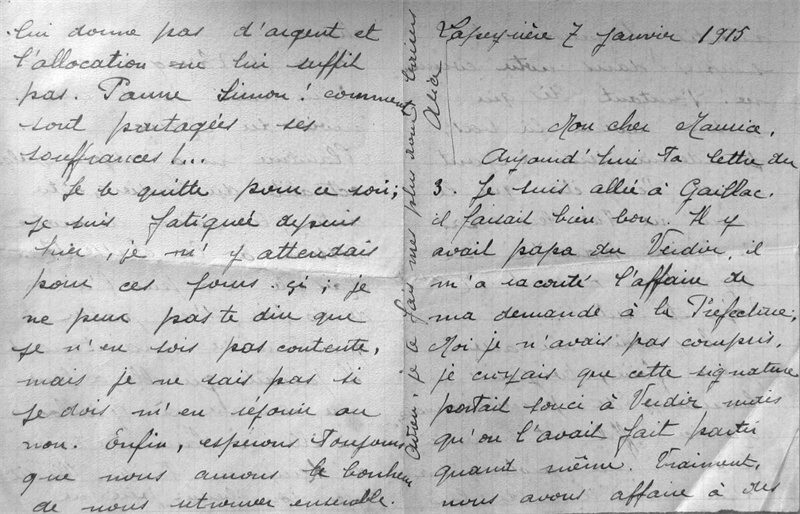 Lapeyrière 7 janvier 1915
Mon cher Maurice,
Aujourd'hui ta lettre du
3. Je suis allée à Gaillac.
il faisait bien bon. Il y
avait papa du Verdier, il
m'a raconté l'affaire de
ma demande à la Préfecture,
Moi je n'avais pas compris,
je croyais que cette signature
portait souci à Verdier, mais
qu'on l'avait fait partir
quand même. Vraiment,
nous avons affaire à des
lui donne pas d'argent et
l'allocation ne lui suffit
pas. Pauvre Simon! comment
sont partagées ses
souffrances!...
Je te quitte pour ce soir;
je suis fatiguée depuis
hier, je m'y attendais
pour ces jours-çi; je
ne peux pas te dire que
je n'en sois pas contente,
mais je ne sais pas si
je dois m'en réjouir ou
non. Enfin, espérons toujours
que nous aurons le bonheur
de nous retrouver ensemble.
je te fais mes plus
Alice